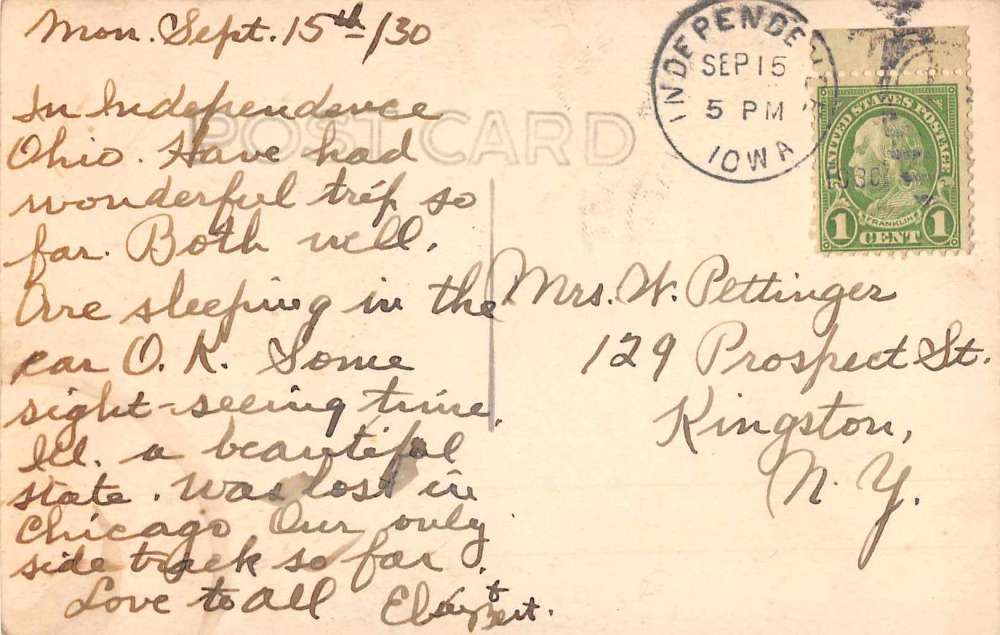 Mon. Sept. 15th/30
In Independence
Ohio. Have had
wonderful trip so
far. Both well.
Are sleeping in the
car O.K. Some
sight-seeing time.
Ill. a beautiful
state. Was lost in
Chicago Our only
side track so far.
Love to all
+ Bert.
POST CARD
INDEPENDE
SEP 15
5 PM
IOWA
UNITED STATES POSTAGE
FRANKLIN
1 CENT 1
Mrs. W. Pettinger
129 Prospect St.
Kingston,
N. Y.